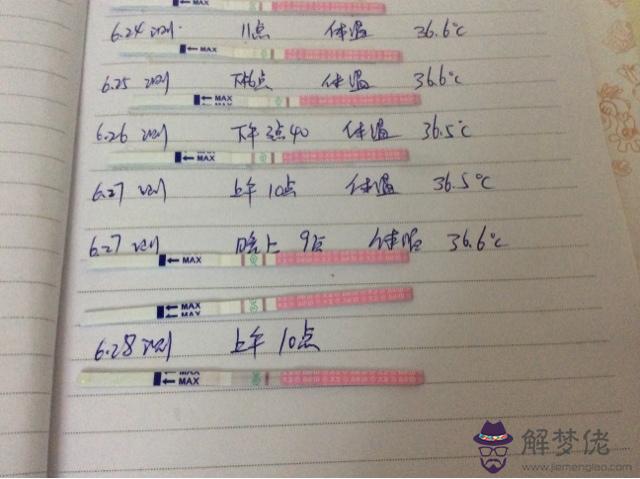 ← MAX
6.24 测 11点 体温 36.6℃
← MAX
6.25 测 下午6点 体温 36.6℃
← MAX
← MAX
6.26 测 下午3点40 体温 36.5℃
← MAX
6.27 测 上午10点 体温 36.5℃
6.27 测 晚上 9点 体温 36.6℃
← MAX
← MAX
← MAX
6.28 测 上午 10点
← MAX
← MAX
解梦佬
www.jiemenglao.com